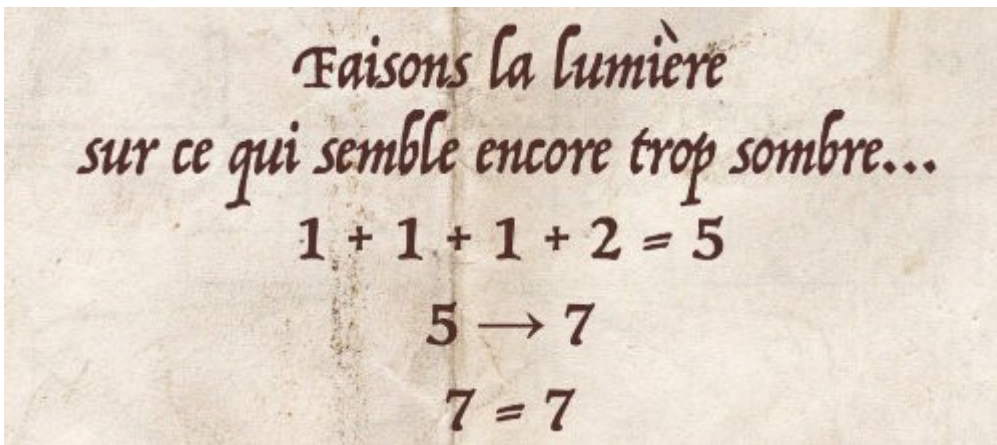 Faisons la lumière
sur ce qui semble encore trop sombre...
1 + 1 + 1 + 2 = 5
5 → 7
7 = 7